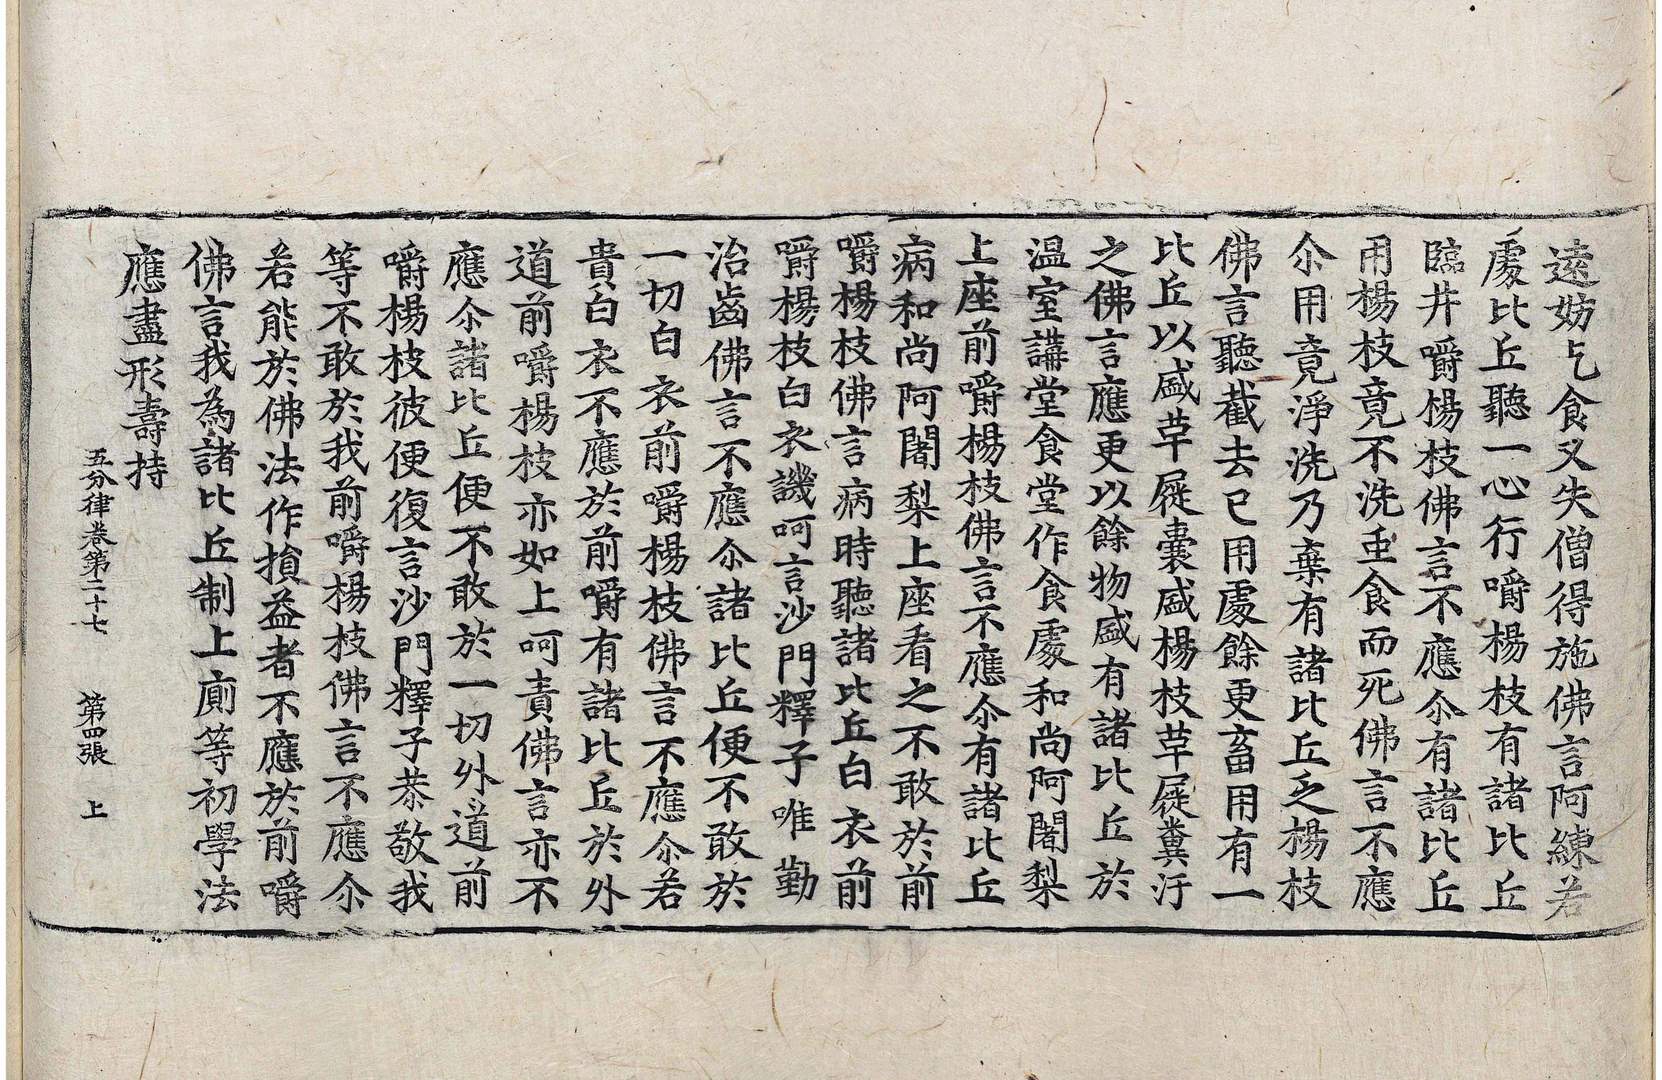 遠妨乞食又失僧得施佛言阿練若
處比丘聽一心行嚼楊枝有諸比丘
臨井嚼楊枝佛言不應尒有諸比丘
用楊枝竟不洗重食而死佛言不應
尒用竟淨洗乃棄有諸比丘乏楊枝
佛言聽截去已用處餘更畜用有一
比丘以盛草屣囊盛楊枝草屣糞汙
之佛言應更以餘物盛有諸比丘於
温室講堂食堂作食處和尚阿闍梨
上座前嚼楊枝佛言不應尒有諸比丘
病和尚阿闍梨上座看之不敢於前
嚼楊枝佛言病時聽諸比丘白衣前
嚼楊枝白衣譏呵言沙門釋子唯勤
治齒佛言不應尒諸比丘便不敢於
一切白衣前嚼楊枝佛言不應尒若
貴白衣不應於前嚼有諸比丘於外
道前嚼楊枝亦如上呵責佛言亦不
應尒諸比丘便不敢於一切外道前
嚼楊枝彼便復言沙門釋子恭敬我
等不敢於我前嚼楊枝佛言不應尒
若能於佛法作損益者不應於前嚼
佛言我為諸比丘制上廁等初學法
應盡形壽持
五分律卷第二十七 第四張 上